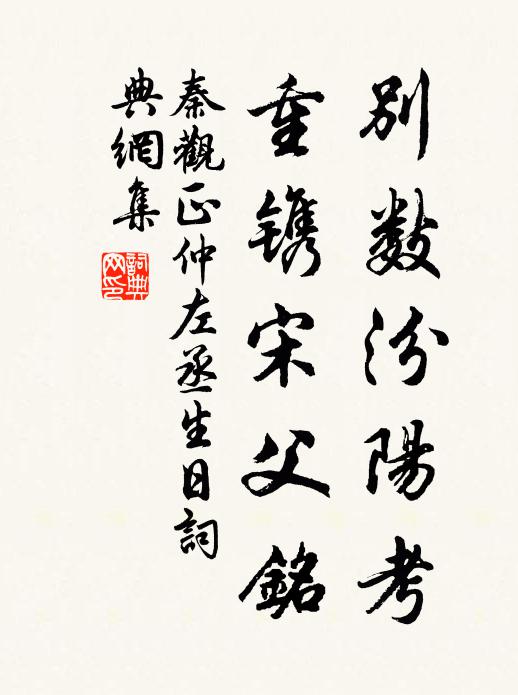 別數汾陽考
重镌宋父銘
秦觀正仲左丞生日詞
典網集
詞典網印